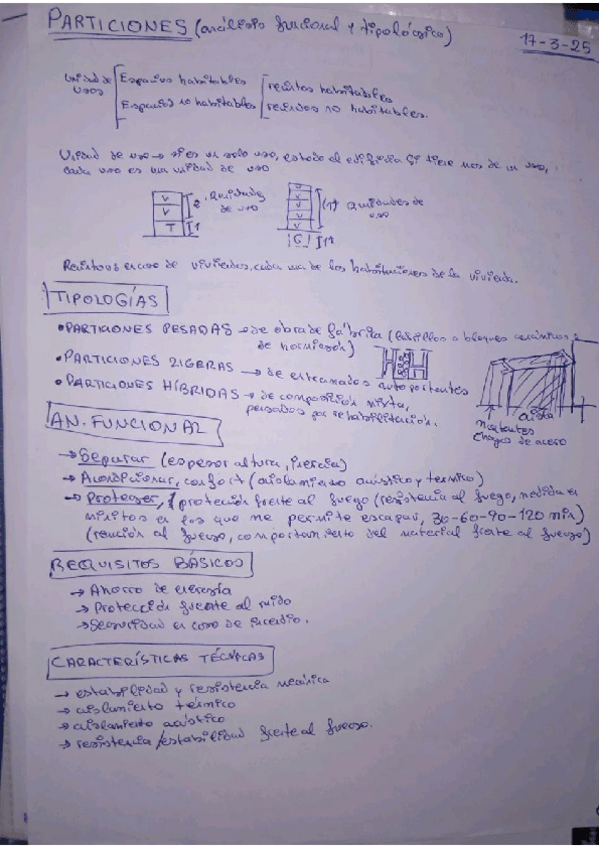 PARTICIONES (análisis funcional y tipológico)
17-3-25
Unidad de usos
Espacios habitables
Espacios no habitables
recintos habitables
recintos no habitables.
Unidad de uso → si es un solo uso, es todo el edificio si tiene mas de un uso,
cada uso es una unidad de uso
V
V
T
2
1
unidades de uso
V
V
V
V
G
2 unidades de uso
Recintos en caso de viviendas, cada una de las habitaciones de la vivienda.
TIPOLOGÍAS
• PARTICIONES PESADAS → de obra de fábrica (ladrillos o bloques cerámicos;
de hormigón)
• PARTICIONES LIGERAS → de entramados autoportantes
• PARTICIONES HÍBRIDAS → de composición mixta,
pensados por rehabilitación.
aisla
montantes
chapas de acero
AN. FUNCIONAL
→ Separar (espesor altura, inercia)
→ Acondicionar, confort (aislamiento acústico y termico)
→ Proteger, protección frente al fuego (resistencia al fuego, medida en
minutos en los que me permite escapar, 30-60-90-120 min)
(reacción al fuego, comportamiento del material frente al fuego)
REQUISITOS BÁSICOS
→ Ahorro de energía
→ Protección frente al ruido
→ Seguridad en caso de incendio.
CARACTERÍSTICAS TÉCNICAS
→ estabilidad y resistencia mecánica
→ aislamiento térmico
→ aislamiento acústico
→ resistencia/estabilidad frente al fuego.